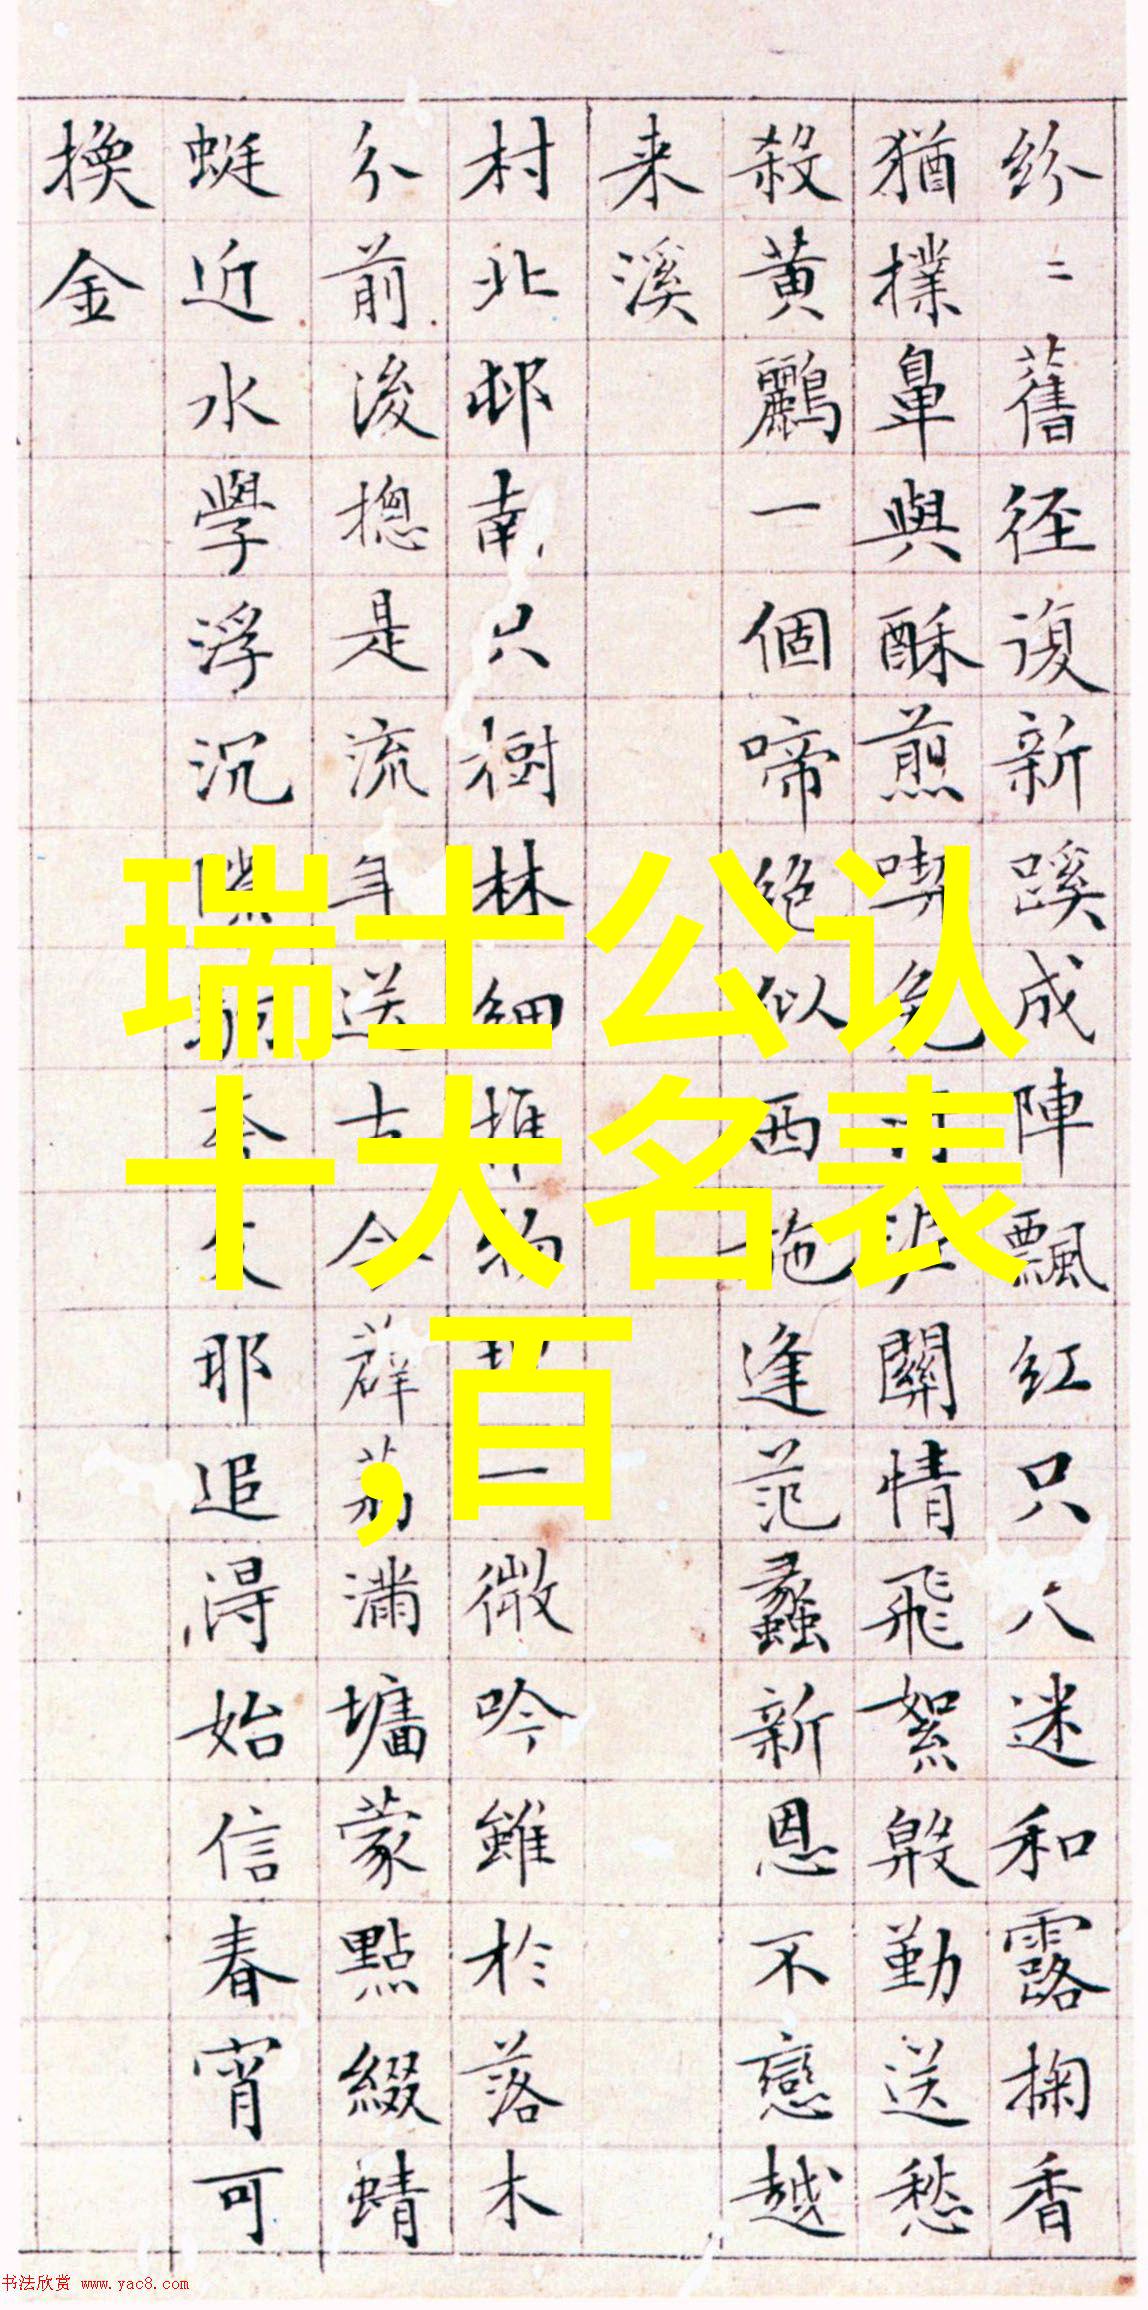 紛〻舊徑復新蹊成陣飄紅只迷和露掬香
猶撲鼻與酥煎喫免關情飛絮慇勤送愁
殺黃鸝一個啼絕似西施逢范蠡新恩不戀越
来溪
村北邨南只樹林細推物一微吟雖於落木
分前後摠是流年送古今薜荔滿墉蒙點綴蜻
蜓近水學浮沉耶追得始信春宵可
換金
瑞士公认
十大名表
,百
书法欣赏 www.yac8.com